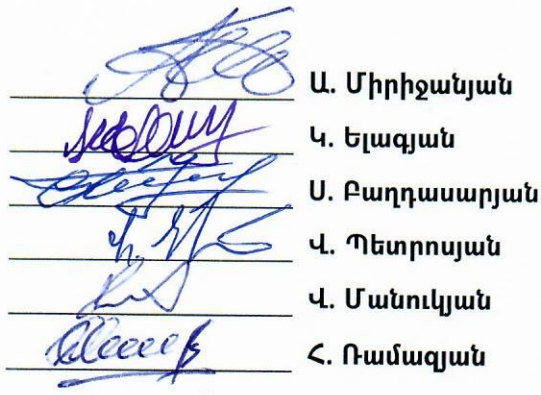 Ա. Միրիջանյան
Կ. Ելագյան
Ս. Բաղդասարյան
Վ. Պետրոսյան
Վ. Մանուկյան
Հ. Ռամազյան